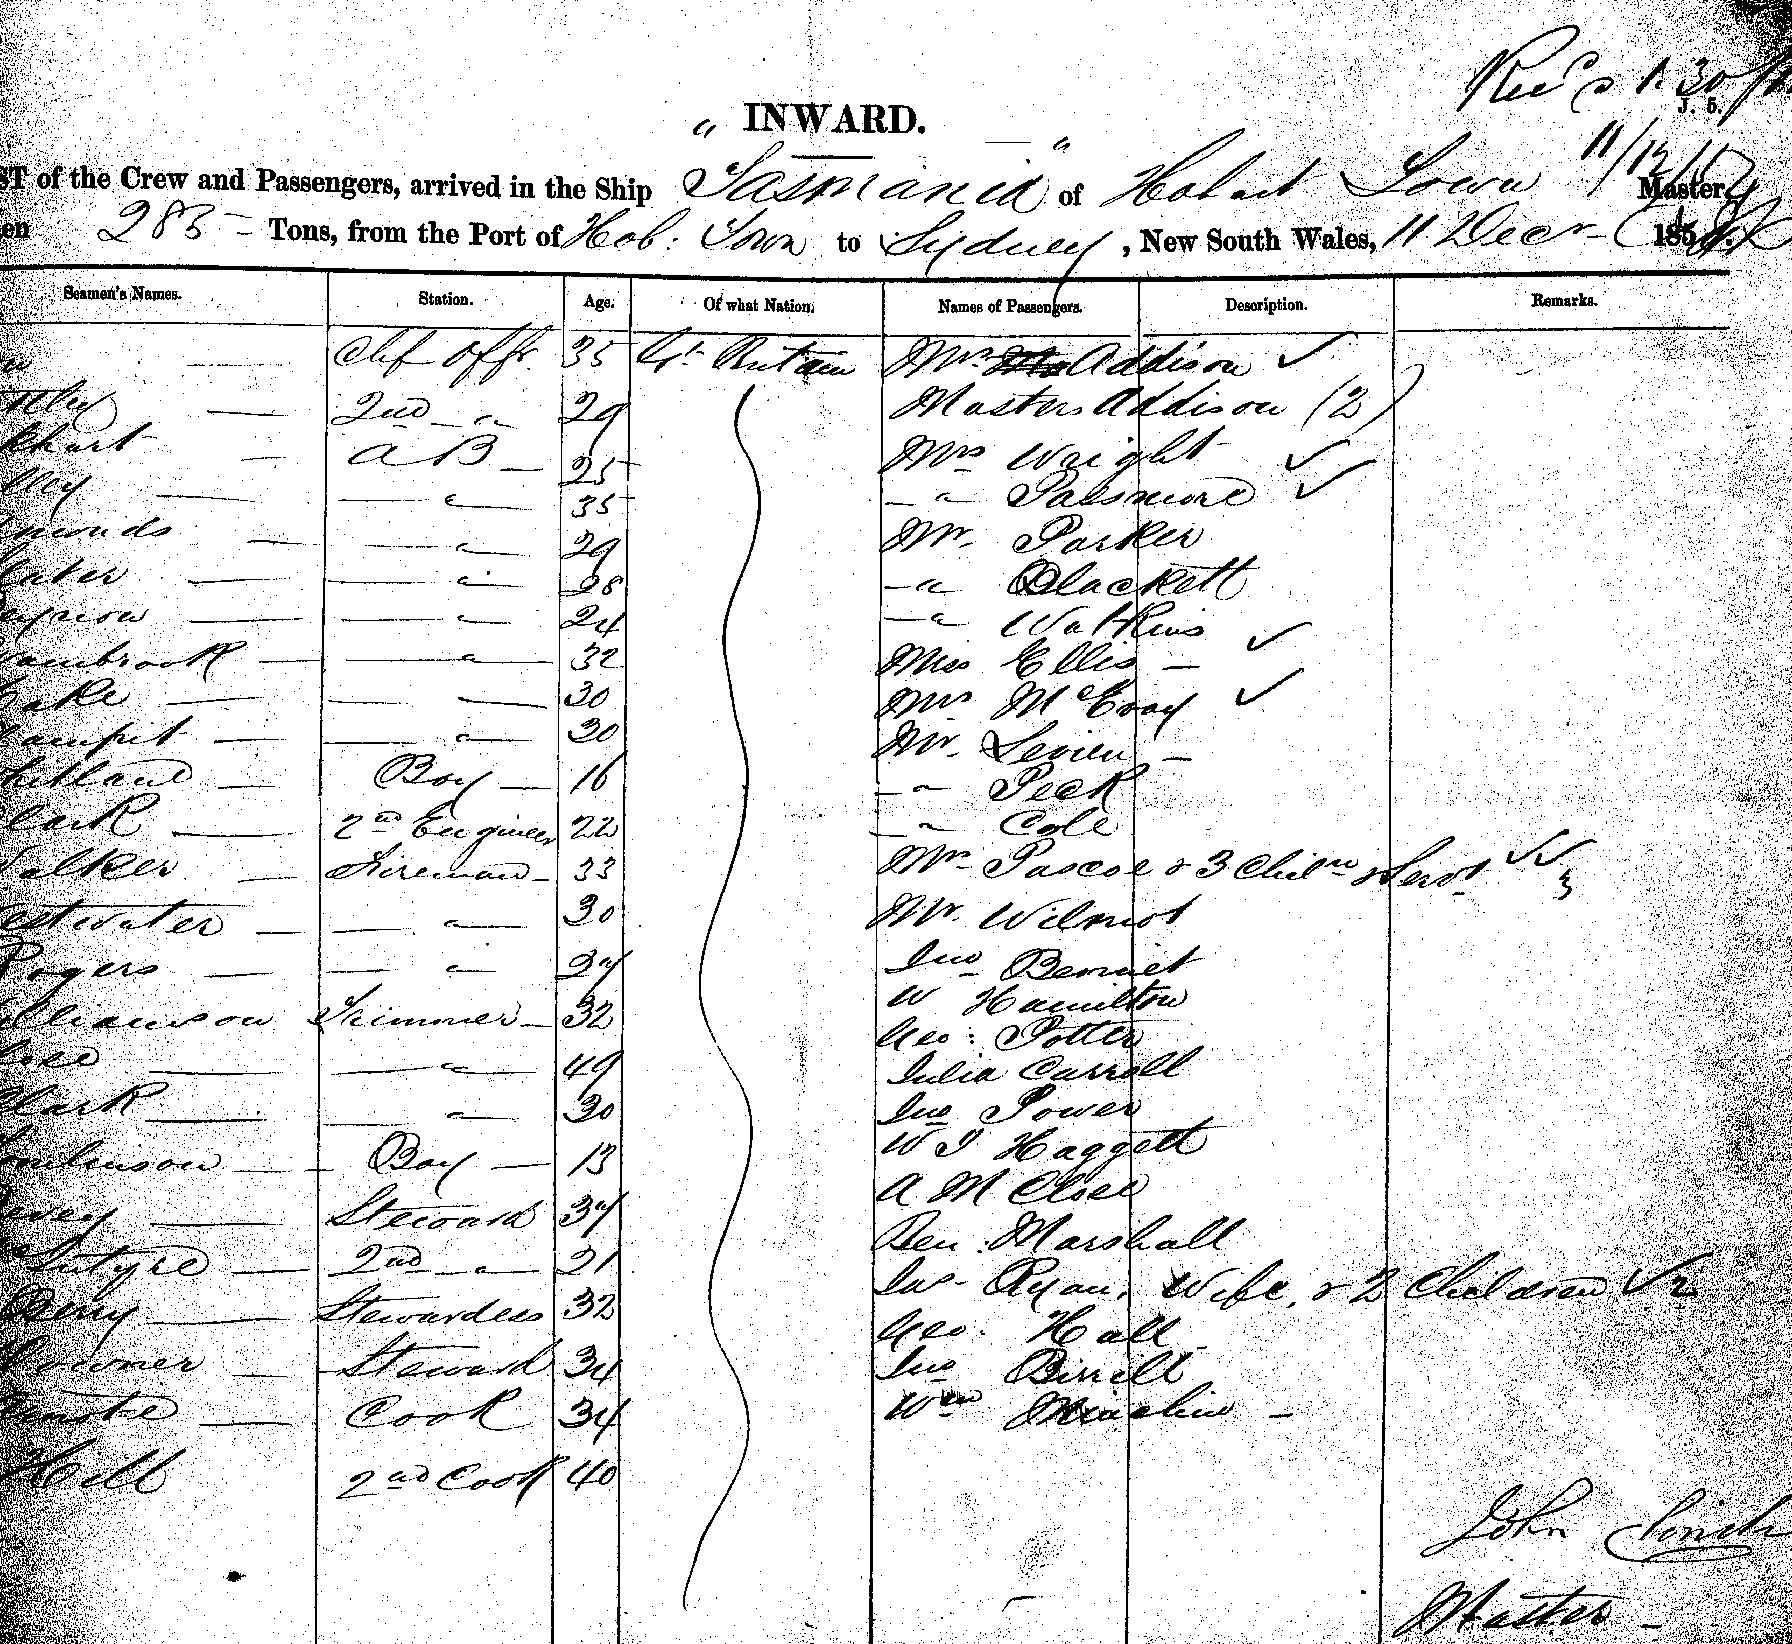 Rec'd 1.30
J. 5.
" INWARD. "
11/12/
ST of the Crew and Passengers, arrived in the Ship Tasmania of Hobart Town Master,
en 285 - Tons, from the Port of Hob: Town to Sydney, New South Wales, 11 Decr 185
Seamen's Names. Station. Age. Of what Nation. Names of Passengers. Description. Remarks.
— Chf Offr. 35 Gt. Britain Mrs Addison ✓
— 2nd " 29 Masters Addison (2)
khart — A B — 25 Mrs Wright ✓
— " — 35 — " Passmore ✓
monds — — " — 29 Mr. Parker
later — — " — 28 — " Blackett
— — " — 24 — " Watkins
ambrook — — " — 32 Miss Ellis — ✓
ake — — — 30 Mrs McEvoy ✓
ampit — — " — 30 Mr. Levien —
hetland — Boy — 16 — " Peck
lark — 2nd Engineer 22 — " Cole
alker — Fireman — 33 Mrs Pascoe & 3 Chiln & Servt ✓✓ 3
estwater — — " — 30 Mr. Wilmot
Rogers — — " — Jno Bennet
illiamson Trimmer — 32 W Hamilton
— — " — 49 Geo: Potter
lark — — " — 30 Julia Carroll
omlinson — Boy — 13 Jno Power
avey — Steward 37 W J Haggett
Intyre — 2nd " — 21 A McElsee
Berry — Stewardess 32 Ben: Marshall
owner — Steward 34 Jas Ryan, Wife, & 2 Children ✓ 2
— Cook 34 Geo. Hall
Hill 2nd Cook 40 Jno Birrell
Wm Minchin —
John Clinch
Master —